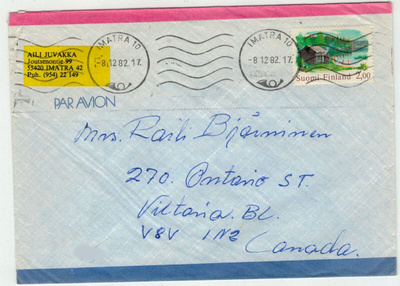 AILI JUVAKKA
Joutsenontie 99
55420 IMATRA 42
Puh. (954) 22 149
IMATRA 10
-8.12.82.17.
IMATRA 10
-8.12.82.17.
Suomi Finland 2,00
PAR AVION
Mrs. Raili Björninen
270. Ontario ST.
Viktoria. BC.
V8V 1N2
Canada.